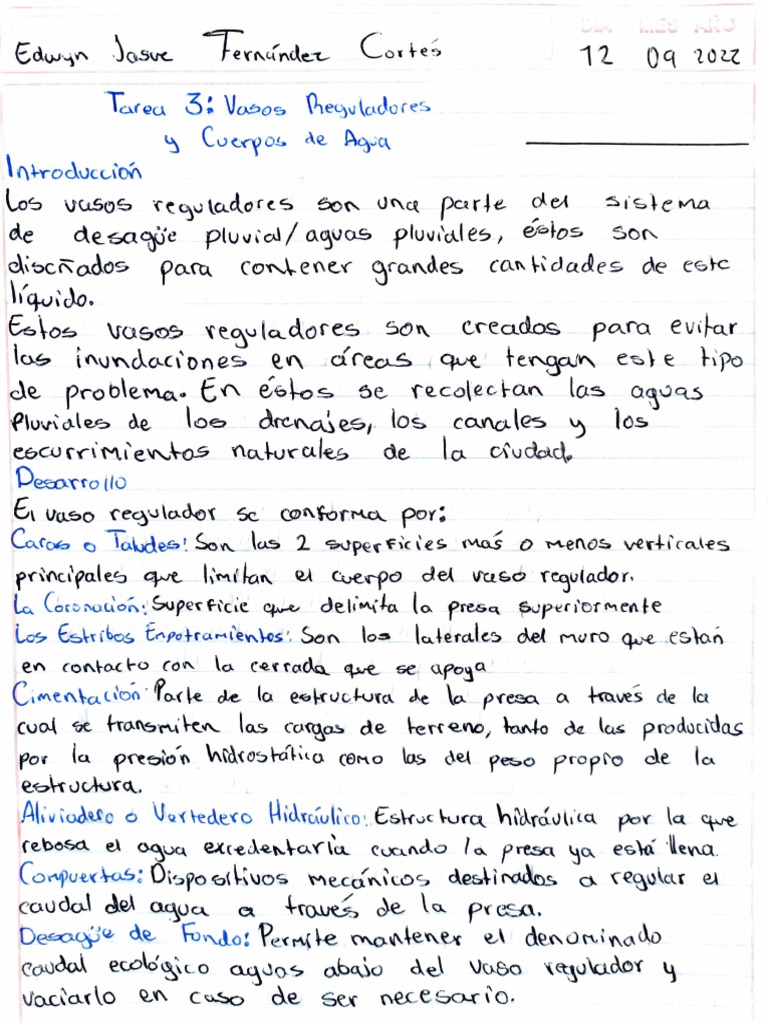 DIA MES AÑO
Edwyn Jasve Fernández Cortés 12 09 2022
Tarea 3: Vasos Reguladores
y Cuerpos de Agua
Introducción
Los vasos reguladores son una parte del sistema
de desagüe pluvial/aguas pluviales, éstos son
diseñados para contener grandes cantidades de este
líquido.
Estos vasos reguladores son creados para evitar
las inundaciones en áreas que tengan este tipo
de problema. En éstos se recolectan las aguas
pluviales de los drenajes, los canales y los
escurrimientos naturales de la ciudad.
Desarrollo
El vaso regulador se conforma por:
Caras o Taludes: Son las 2 superficies más o menos verticales
principales que limitan el cuerpo del vaso regulador.
La Coronación: Superficie que delimita la presa superiormente
Los Estribos Empotramientos: Son los laterales del muro que están
en contacto con la cerrada que se apoya
Cimentación: Parte de la estructura de la presa a través de la
cual se transmiten las cargas de terreno, tanto de las producidas
por la presión hidrostática como las del peso propio de la
estructura.
Aliviadero o Vertedero Hidráulico: Estructura hidráulica por la que
rebosa el agua excedentaria cuando la presa ya está llena.
Compuertas: Dispositivos mecánicos destinados a regular el
caudal del agua a través de la presa.
Desagüe de Fondo: Permite mantener el denominado
caudal ecológico aguas abajo del vaso regulador y
vaciarlo en caso de ser necesario.